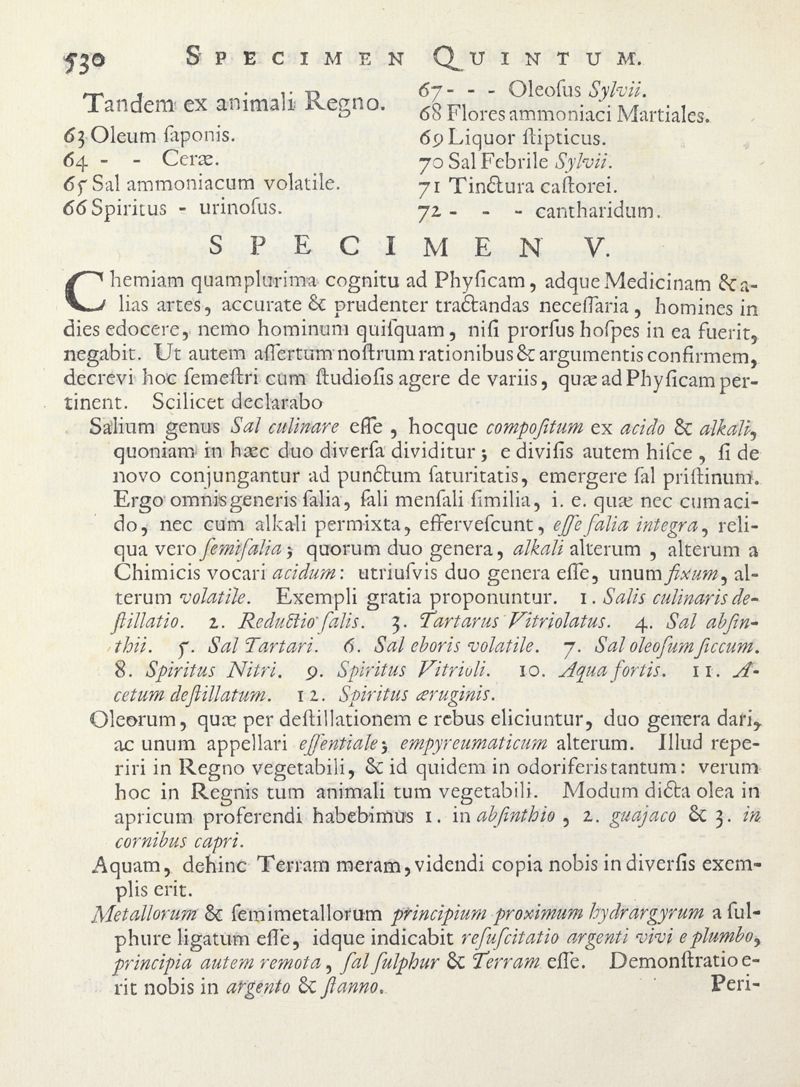 530 SPECIMEN QUINTUM.
Tandem ex animali Regno.
63 Oleum ſaponis.
64 - - Ceræ.
65 Sal ammoniacum volatile.
66 Spiritus - urinoſus.
67 - - - Oleoſus Sylvii.
68 Flores ammoniaci Martiales.
69 Liquor ſtipticus.
70 Sal Febrile Sylvii.
71 Tinctura caſtorei.
72 - - - cantharidum.
SPECIMEN V.
Chemiam quamplurima cognitu ad Phyſicam, adque Medicinam & a-
lias artes, accurate & prudenter tractandas neceſſaria, homines in
dies edocere, nemo hominum quiſquam, niſi prorſus hoſpes in ea fuerit,
negabit. Ut autem aſſertum noſtrum rationibus & argumentis confirmem,
decrevi hoc ſemeſtri cum ſtudioſis agere de variis, quæ ad Phyſicam per-
tinent. Scilicet declarabo
Salium genus Sal culinare eſſe, hocque compoſitum ex acido & alkali,
quoniam in hæc duo diverſa dividitur; e diviſis autem hiſce, ſi de
novo conjungantur ad punctum ſaturitatis, emergere ſal priſtinum.
Ergo omnis generis ſalia, ſali menſali ſimilia, i. e. quæ nec cum aci-
do, nec cum alkali permixta, efferveſcunt, eſſe ſalia integra, reli-
qua vero ſemiſalia; quorum duo genera, alkali alterum, alterum a
Chimicis vocari acidum: utriuſvis duo genera eſſe, unum fixum, al-
terum volatile. Exempli gratia proponuntur. 1. Salis culinaris de-
ſtillatio. 2. Reductio ſalis. 3. Tartarus Vitriolatus. 4. Sal abſin-
thii. 5. Sal Tartari. 6. Sal eboris volatile. 7. Sal oleoſum ſiccum.
8. Spiritus Nitri. 9. Spiritus Vitrioli. 10. Aqua fortis. 11. A-
cetum deſtillatum. 12. Spiritus æruginis.
Oleorum, quæ per deſtillationem e rebus eliciuntur, duo genera dari,
ac unum appellari eſſentiale; empyreumaticum alterum. Illud repe-
riri in Regno vegetabili, & id quidem in odoriferis tantum: verum
hoc in Regnis tum animali tum vegetabili. Modum dicta olea in
apricum proferendi habebimus 1. in abſinthio, 2. guajaco & 3. in
cornibus capri.
Aquam, dehinc Terram meram, videndi copia nobis in diverſis exem-
plis erit.
Metallorum & ſemimetallorum principium proximum hydrargyrum a ſul-
phure ligatum eſſe, idque indicabit reſuſcitatio argenti vivi e plumbo,
principia autem remota, ſal ſulphur & Terram eſſe. Demonſtratio e-
rit nobis in argento & ſtanno.
Peri-